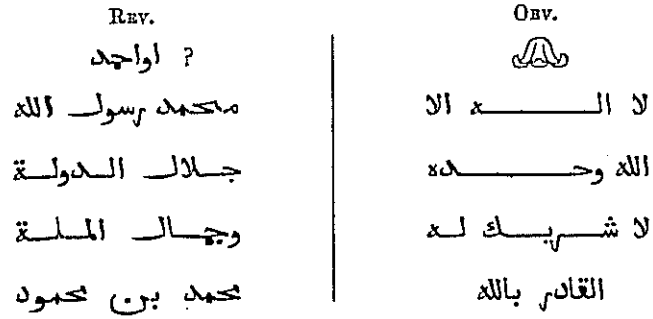 Rev.
?
محمد رسول الله
جلال الدولة
وجمال الملة
محمد بن محمود
Obv.
لا اله الا
الله وحده
لا شريك له
القادر بالله